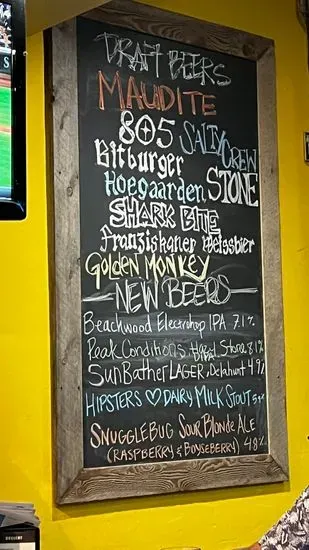 DRAFT BEERS
MAUDITE
805 SALTY CREW
Bitburger
Hoegaarden STONE
SHARK BITE
franziskaner weissbier
Golden MONKEY
NEW BEERS
Beachwood Electrohop IPA 7.1%
Peak Conditions Stone 8.1%
SunBather LAGER, Delahunt 4.9%
HIPSTERS ♡ DAIRY MILK STOUT
SNUGGLEBUG SOUR Blonde ALE
(RASPBERRY & BOYSEBERRY) 4.8%